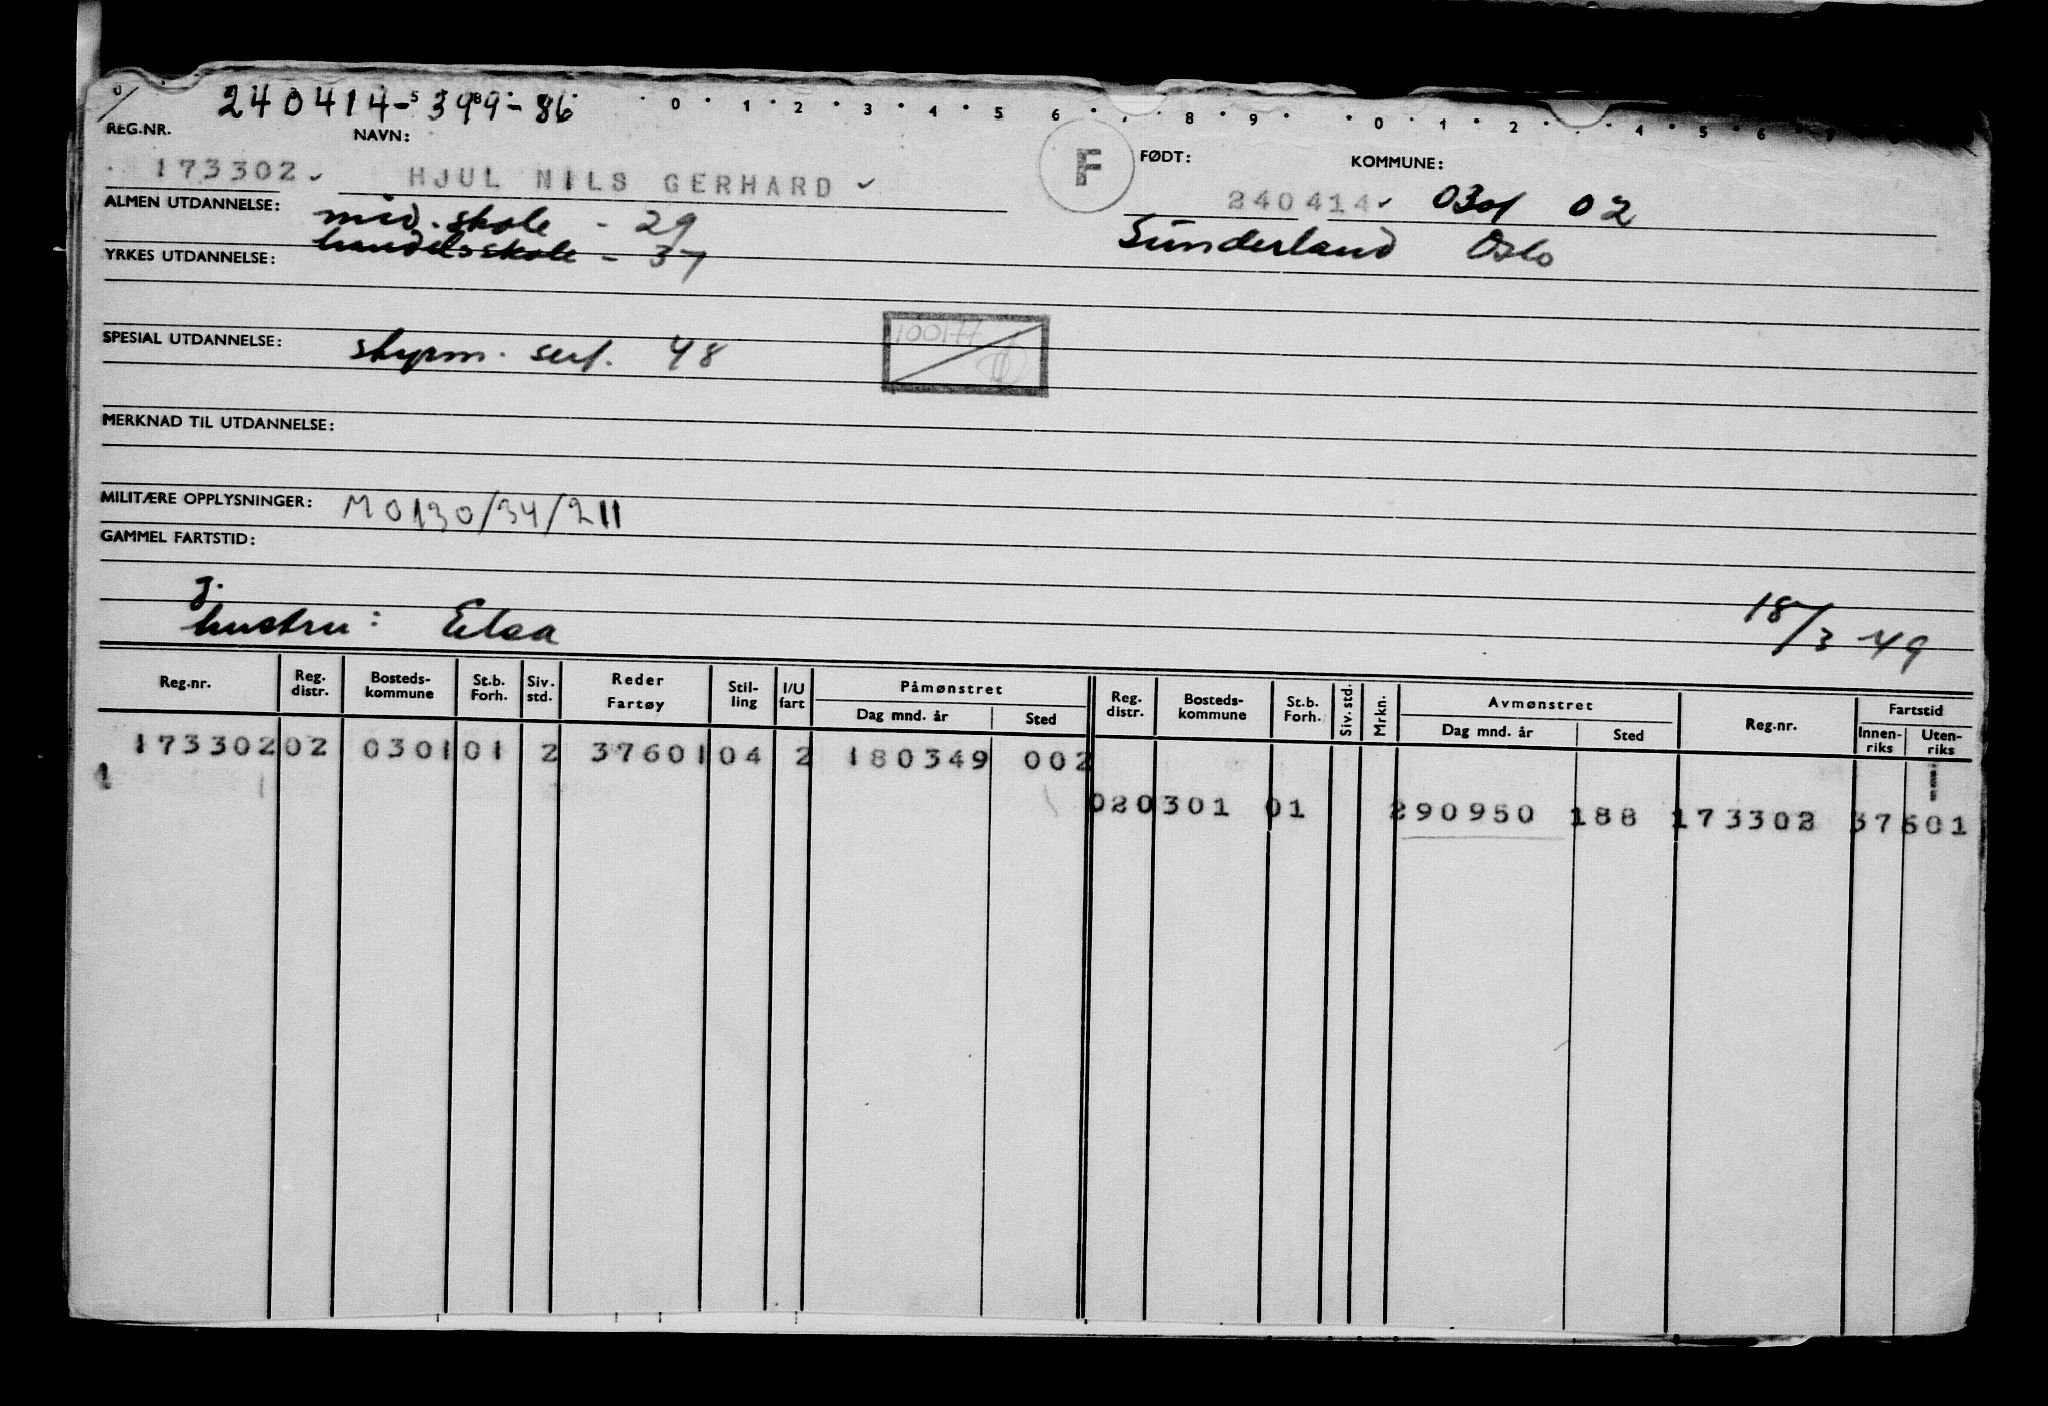 240414-399-86
0 1 2 3 4 5 6 8 9 0 1 2 4 5 6
REG.NR. NAVN: F FØDT: KOMMUNE:
173302 HJUL NILS GERHARD 240414 0301 02
ALMEN UTDANNELSE: mid.skole - 29 Sunderland Oslo
YRKES UTDANNELSE: handelsskole - 37
100177
SPESIAL UTDANNELSE: styrm. sert. 48
MERKNAD TIL UTDANNELSE:
MILITÆRE OPPLYSNINGER: M0130/34/211
GAMMEL FARTSTID:
g.
hustru: Elsa 18/3 49
Reg.nr. Reg. distr. Bosteds-kommune St.b. Forh. Siv. std. Reder Fartøy Stil-ling I/U fart Påmønstret Dag mnd. år Sted Reg. distr. Bosteds-kommune St.b. Forh. Siv. std. Mrkn. Avmønstret Dag mnd. år Sted Reg.nr. Fartstid Innen-riks Uten-riks
173302 02 0301 01 2 37601 04 2 180349 002
1
02 0301 01 290950 188 173302 37601